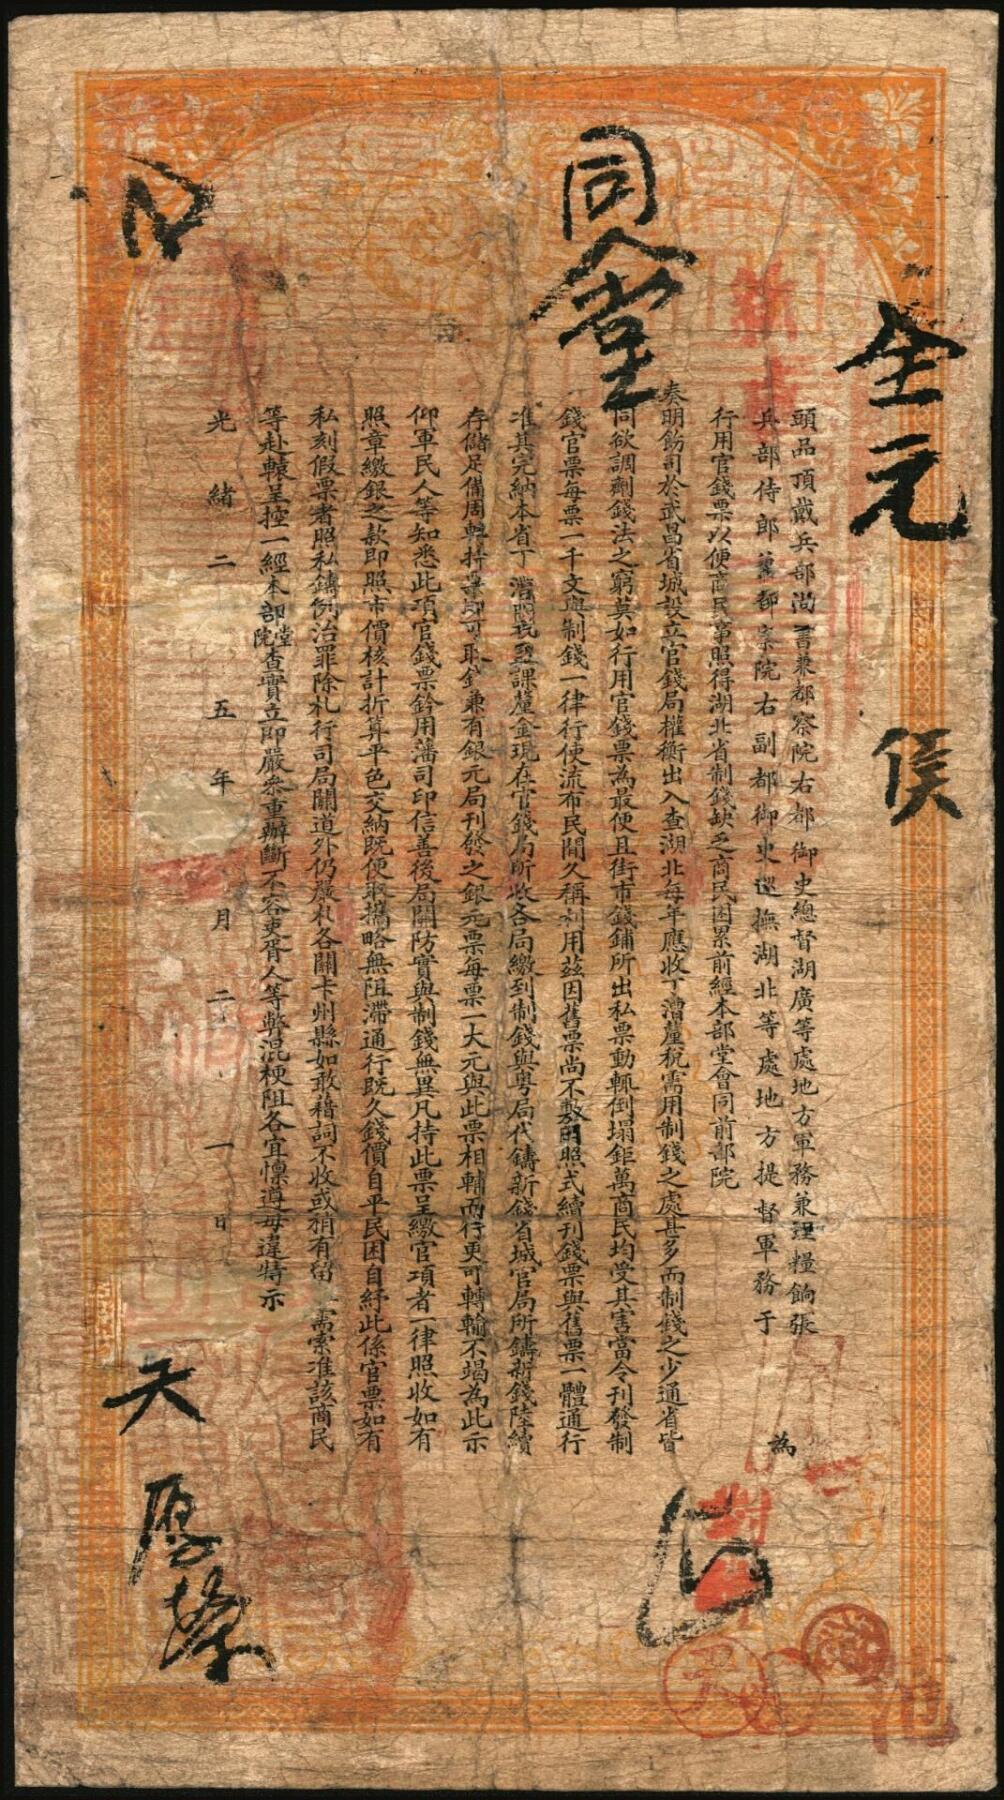 頭品頂戴兵部尚書兼都察院右都御史總督湖廣等處地方軍務兼理糧餉張
兵部侍郎兼都察院右副都御史巡撫湖北等處地方提督軍務于
為
行用官錢票以便商民事照得湖北省制錢缺乏商民困累前經本部堂會同前部院
奏明飭司於武昌省城設立官錢局權衡出入查湖北每年應收丁漕釐稅需用制錢之處甚多而制錢之少通省皆
同欲調劑錢法之窮莫如行用官錢票為最便且街市錢鋪所出私票動輒倒塌鉅萬商民均受其害當令刊發制
錢官票每票一千文與制錢一律行使流布民間久稱利用茲因舊票尚不敷用照式續刊錢票與舊票一體通行
准其完納本省丁漕關稅鹽課釐金現在官錢局所收各局繳到制錢與粵局代鑄新錢省城官局所鑄新錢陸續
存儲足備周轉持票即可取錢兼有銀元局刊發之銀元票每票一大元與此票相輔而行更可轉輸不竭為此示
仰軍民人等知悉此項官錢票鈐用藩司印信善後局關防實與制錢無異凡持此票呈繳官項者一律照收如有
照章繳銀之款即照市價核計折算平色交納既便取攜略無阻滯通行既久錢價自平民困自紓此係官票如有
私刻假票者照私鑄例治罪除札行司局關道外仍嚴札各關卡州縣如敢藉詞不收或稍有留 需索准該商民
等赴轅呈控一經本部堂院查實立即嚴參重辦斷不容吏胥人等弊混梗阻各宜懍遵毋違特示
光緒二 五年 月二 一日
同人堂
全元
侯
天
厚